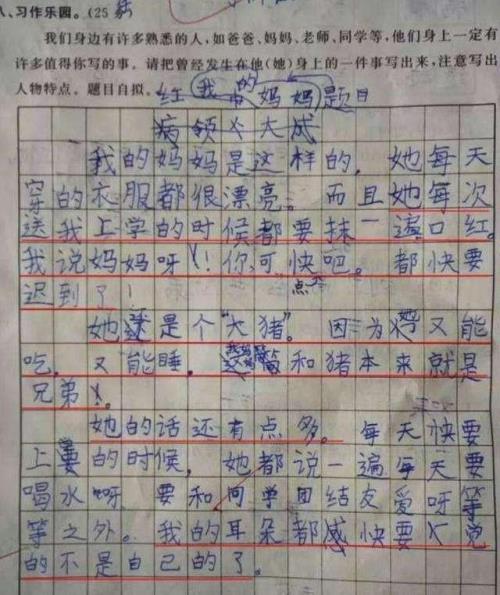 、习作乐园。(25
我们身边有许多熟悉的人,如爸爸、妈妈、老师、同学等,他们身上一定有
许多值得你写的事。请把曾经发生在他(她)身上的一件事写出来,注意写出
人物特点。题目自拟。
我的妈妈 题目
大
我的妈妈是这样的,她每天
穿的衣服都很漂亮。而且她每次
送我上学的时候都要抹一遍口红。
我说妈妈呀!你可快点吧。都快要
迟到了!
她还是个“大猪”。因为她又能
吃,又能睡,我妈妈和猪本来就是
兄弟!。
她的话还有点多。每天快要
上的时候,她都说一遍每天要
喝水呀要和同学团结友爱呀等
等之外。我的耳朵都感快要觉
的不是自己的了。